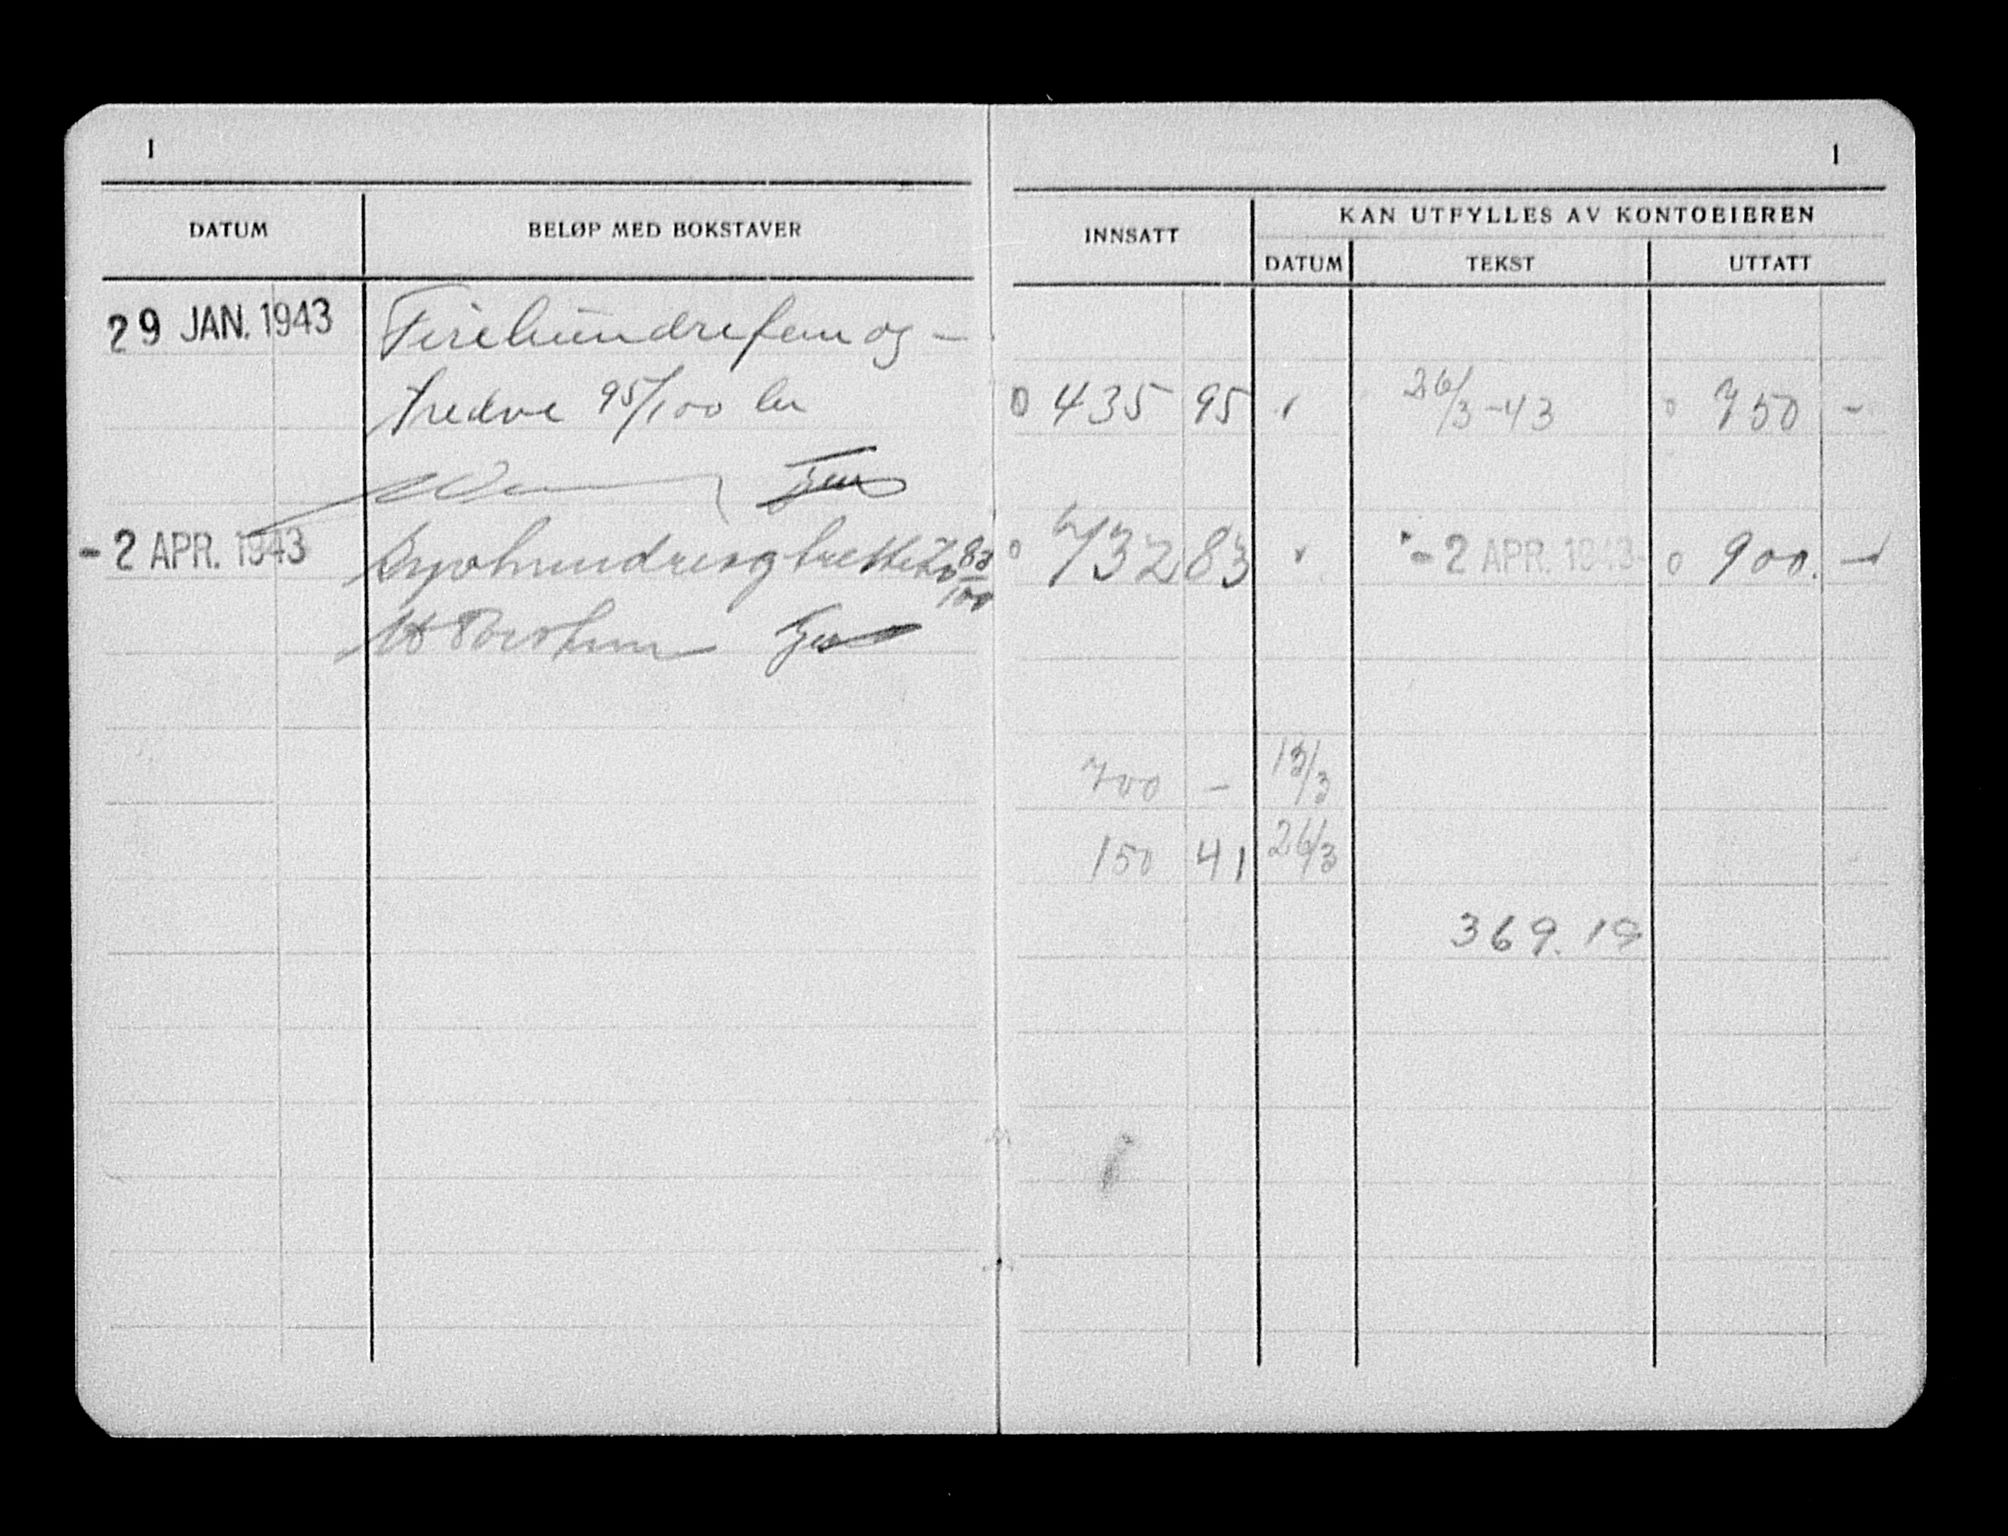 1
1
DATUM BELØP MED BOKSTAVER INNSATT KAN UTFYLLES AV KONTOEIEREN
DATUM TEKST UTTATT
29 JAN. 1943 Firehundrefem og –
tredve 95/100 kr 0 435 95 26/3-43 0 750 -
- 2 APR. 1943 83/100 0 732 83 - 2 APR. 1943 0 900. -
700 - 13/3
150 41 26/3
369.19